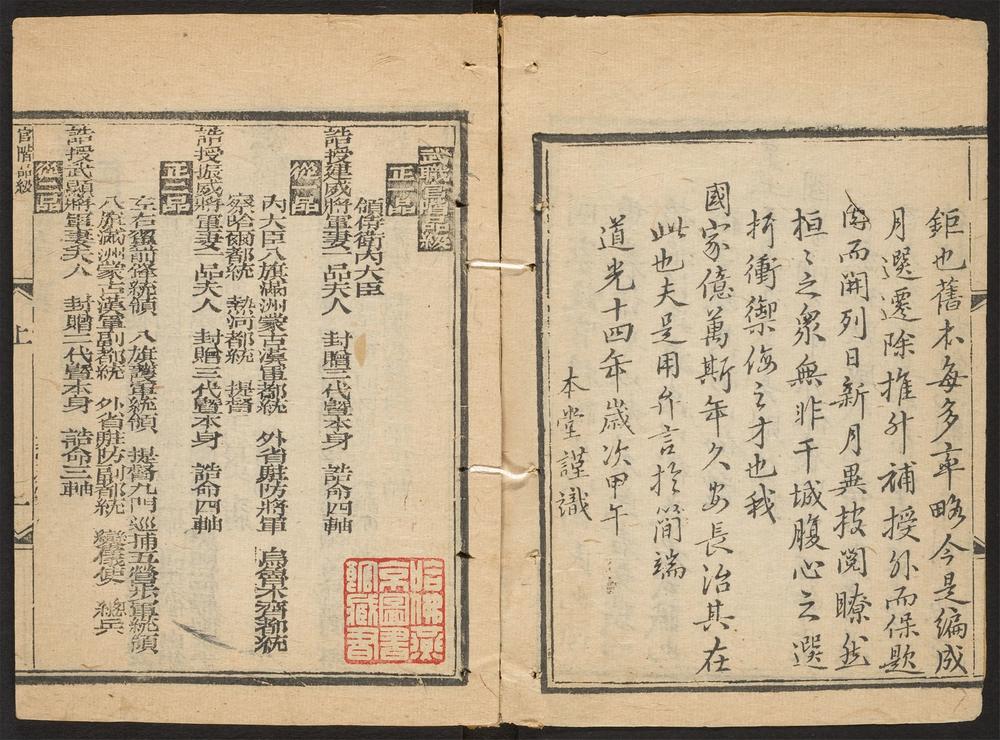 鉅也舊本每多率略今是編成
月選遷除推升補授外而保題
內而開列日新月異披閱瞭然
桓〻之眾無非干城腹心之選
折衝禦侮之才也我
國家億萬斯年久安長治其在
此也夫是用弁言於簡端
道光十四年歲次甲午
本堂謹識
武職官階品級
正一品
領侍衛內大臣
誥授建威將軍妻一品夫人 封贈三代曁本身 誥命四軸
從一品
內大臣 八旗滿洲蒙古漢軍都統 外省駐防將軍 烏魯木齊都統
察哈爾都統 熱河都統 提督
誥授振威將軍妻一品夫人 封贈三代曁本身 誥命四軸
正二品
左右翼前鋒統領 八旗護軍統領 提督九門巡捕五營步軍統領
八旗滿洲蒙古漢軍副都統 外省駐防副都統 鑾儀使 總兵
誥授武顯將軍妻夫人 封贈二代曁本身 誥命三軸
從二品
官階品級
上
哈佛燕京圖書館藏書